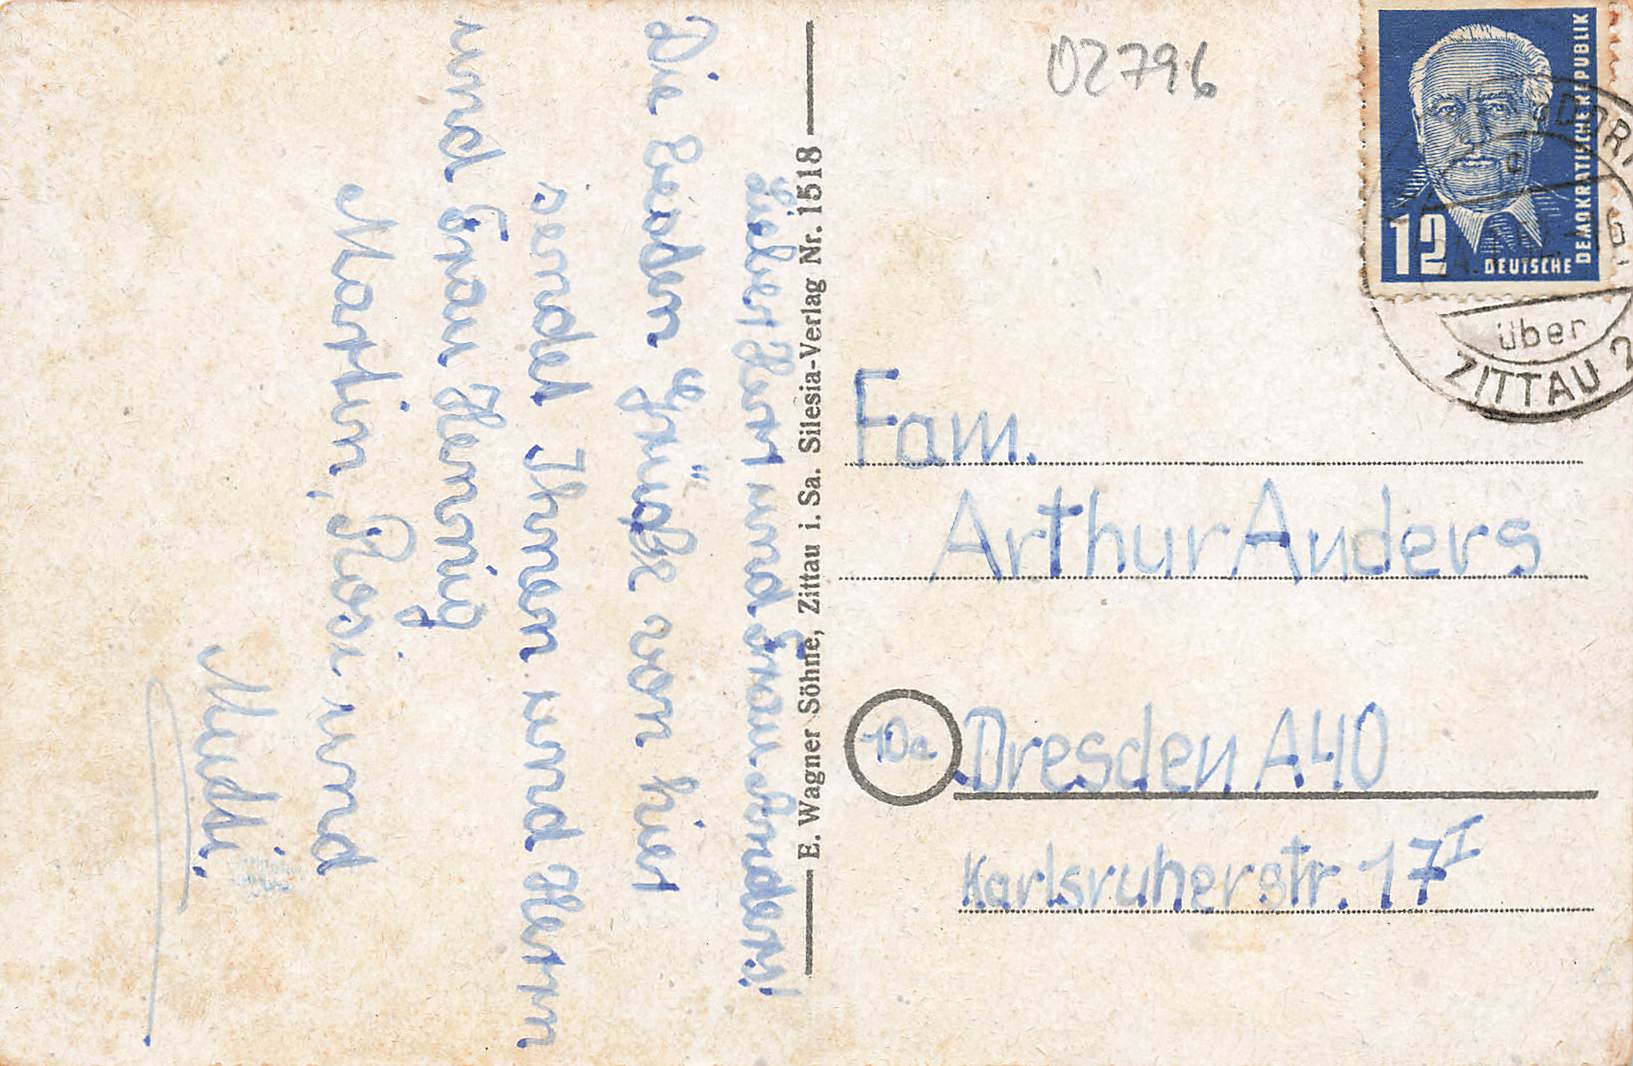 Lieber Herr und Frau Anders!
Die besten Grüße von hier
sendet Ihnen und Herrn
und Frau Hennig
Martin, Rosi und
Mudti.
E. Wagner Söhne, Zittau i. Sa. Silesia-Verlag Nr. 1518
02796
DEUTSCHE DEMOKRATISCHE REPUBLIK
12
DORF
über
ZITTAU 2
Fam.
Arthur Anders
10a Dresden A40
Karlsruherstr. 17 I